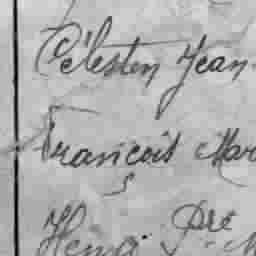 Célestin Jean
François Mar
Henri pre